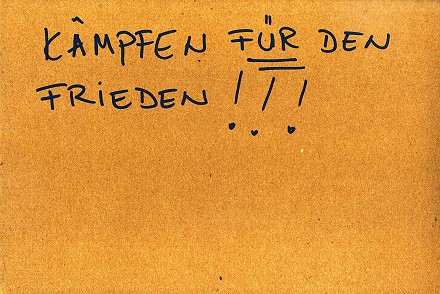 KÂMPFEN FÜR DEN
FRIEDEN !!!